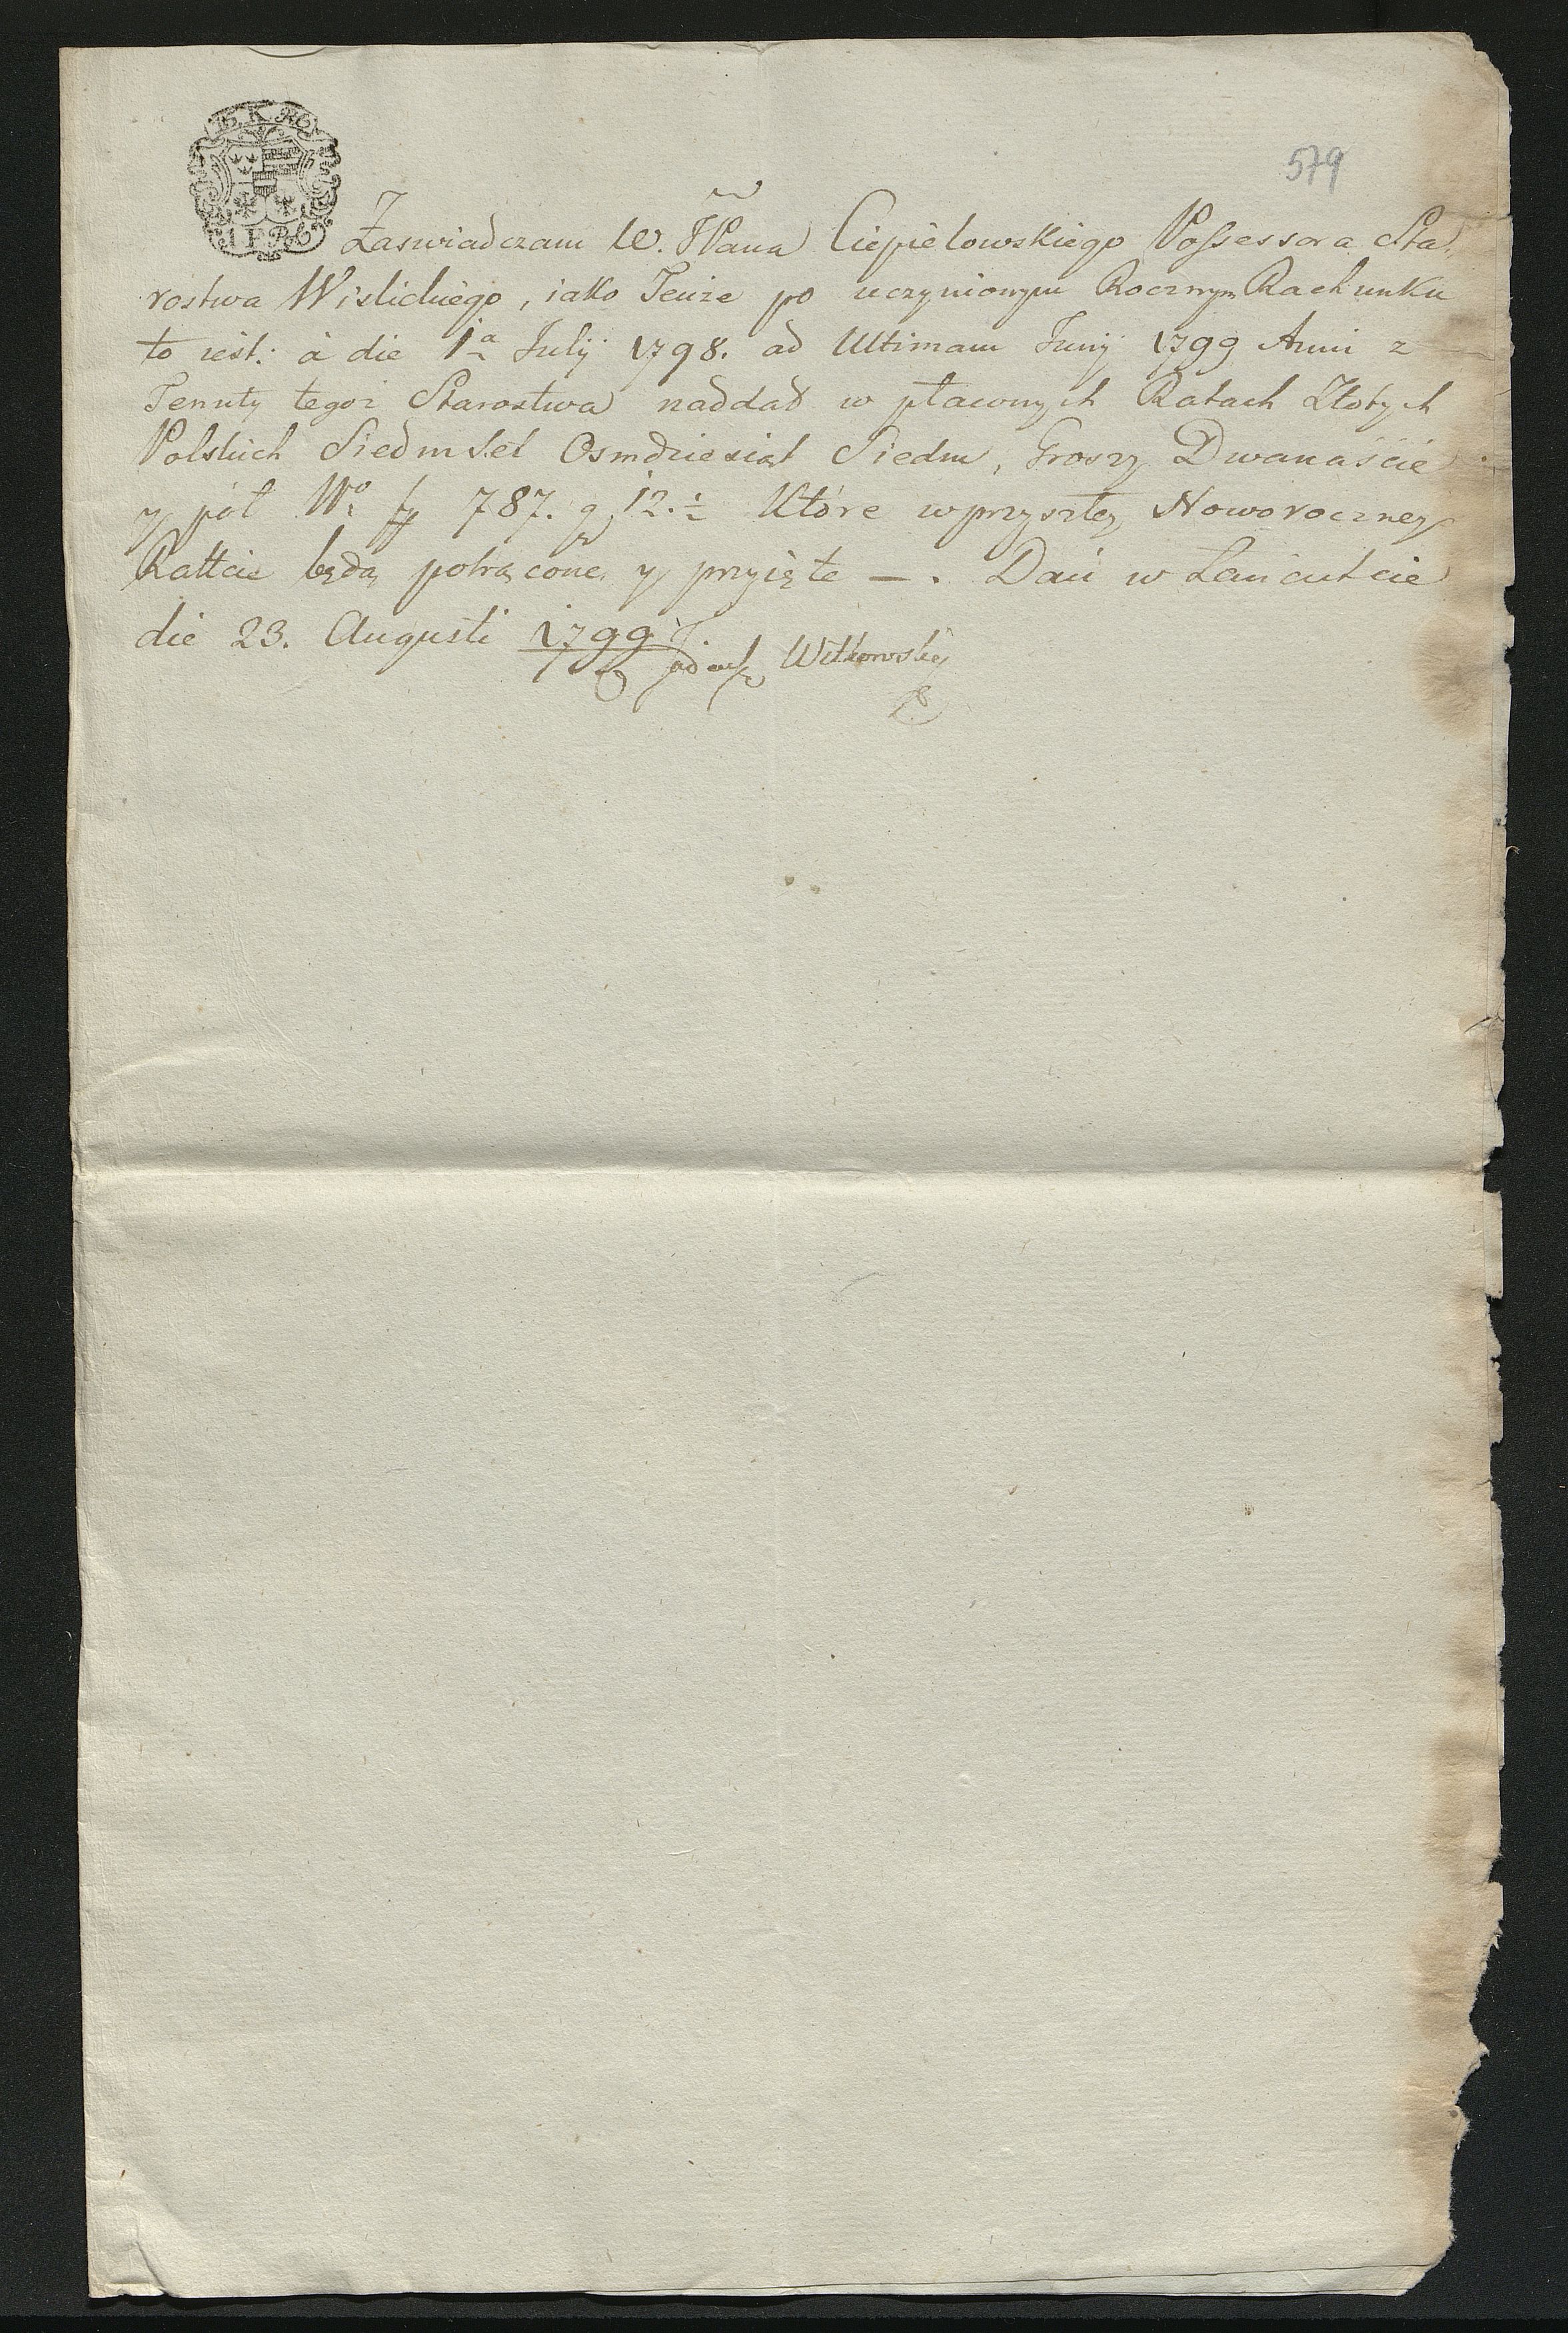 579
Zaswiadczam W. JPana Ciepielowskiego Possessora Sta
rostwa Wislickiego, iako Tenże po uczynionym Rocznym Rachunku
to iest: à die 1a Julij 1798. ad Ultimam Junij 1799 Anni z
Tenuty tegoż Starostwa naddał w płaconych Ratach Złotych
Polskich Siedmset Osmdziesiąt Siedm, Groszy Dwanaście
y pół No fp 787. gr 12.½ Które wprzyszłey Noworoczney
Rattcie będą potrącone y przyięte — . Dań w Łańcutcie
die 23. Augusti 1799
Witkowsky